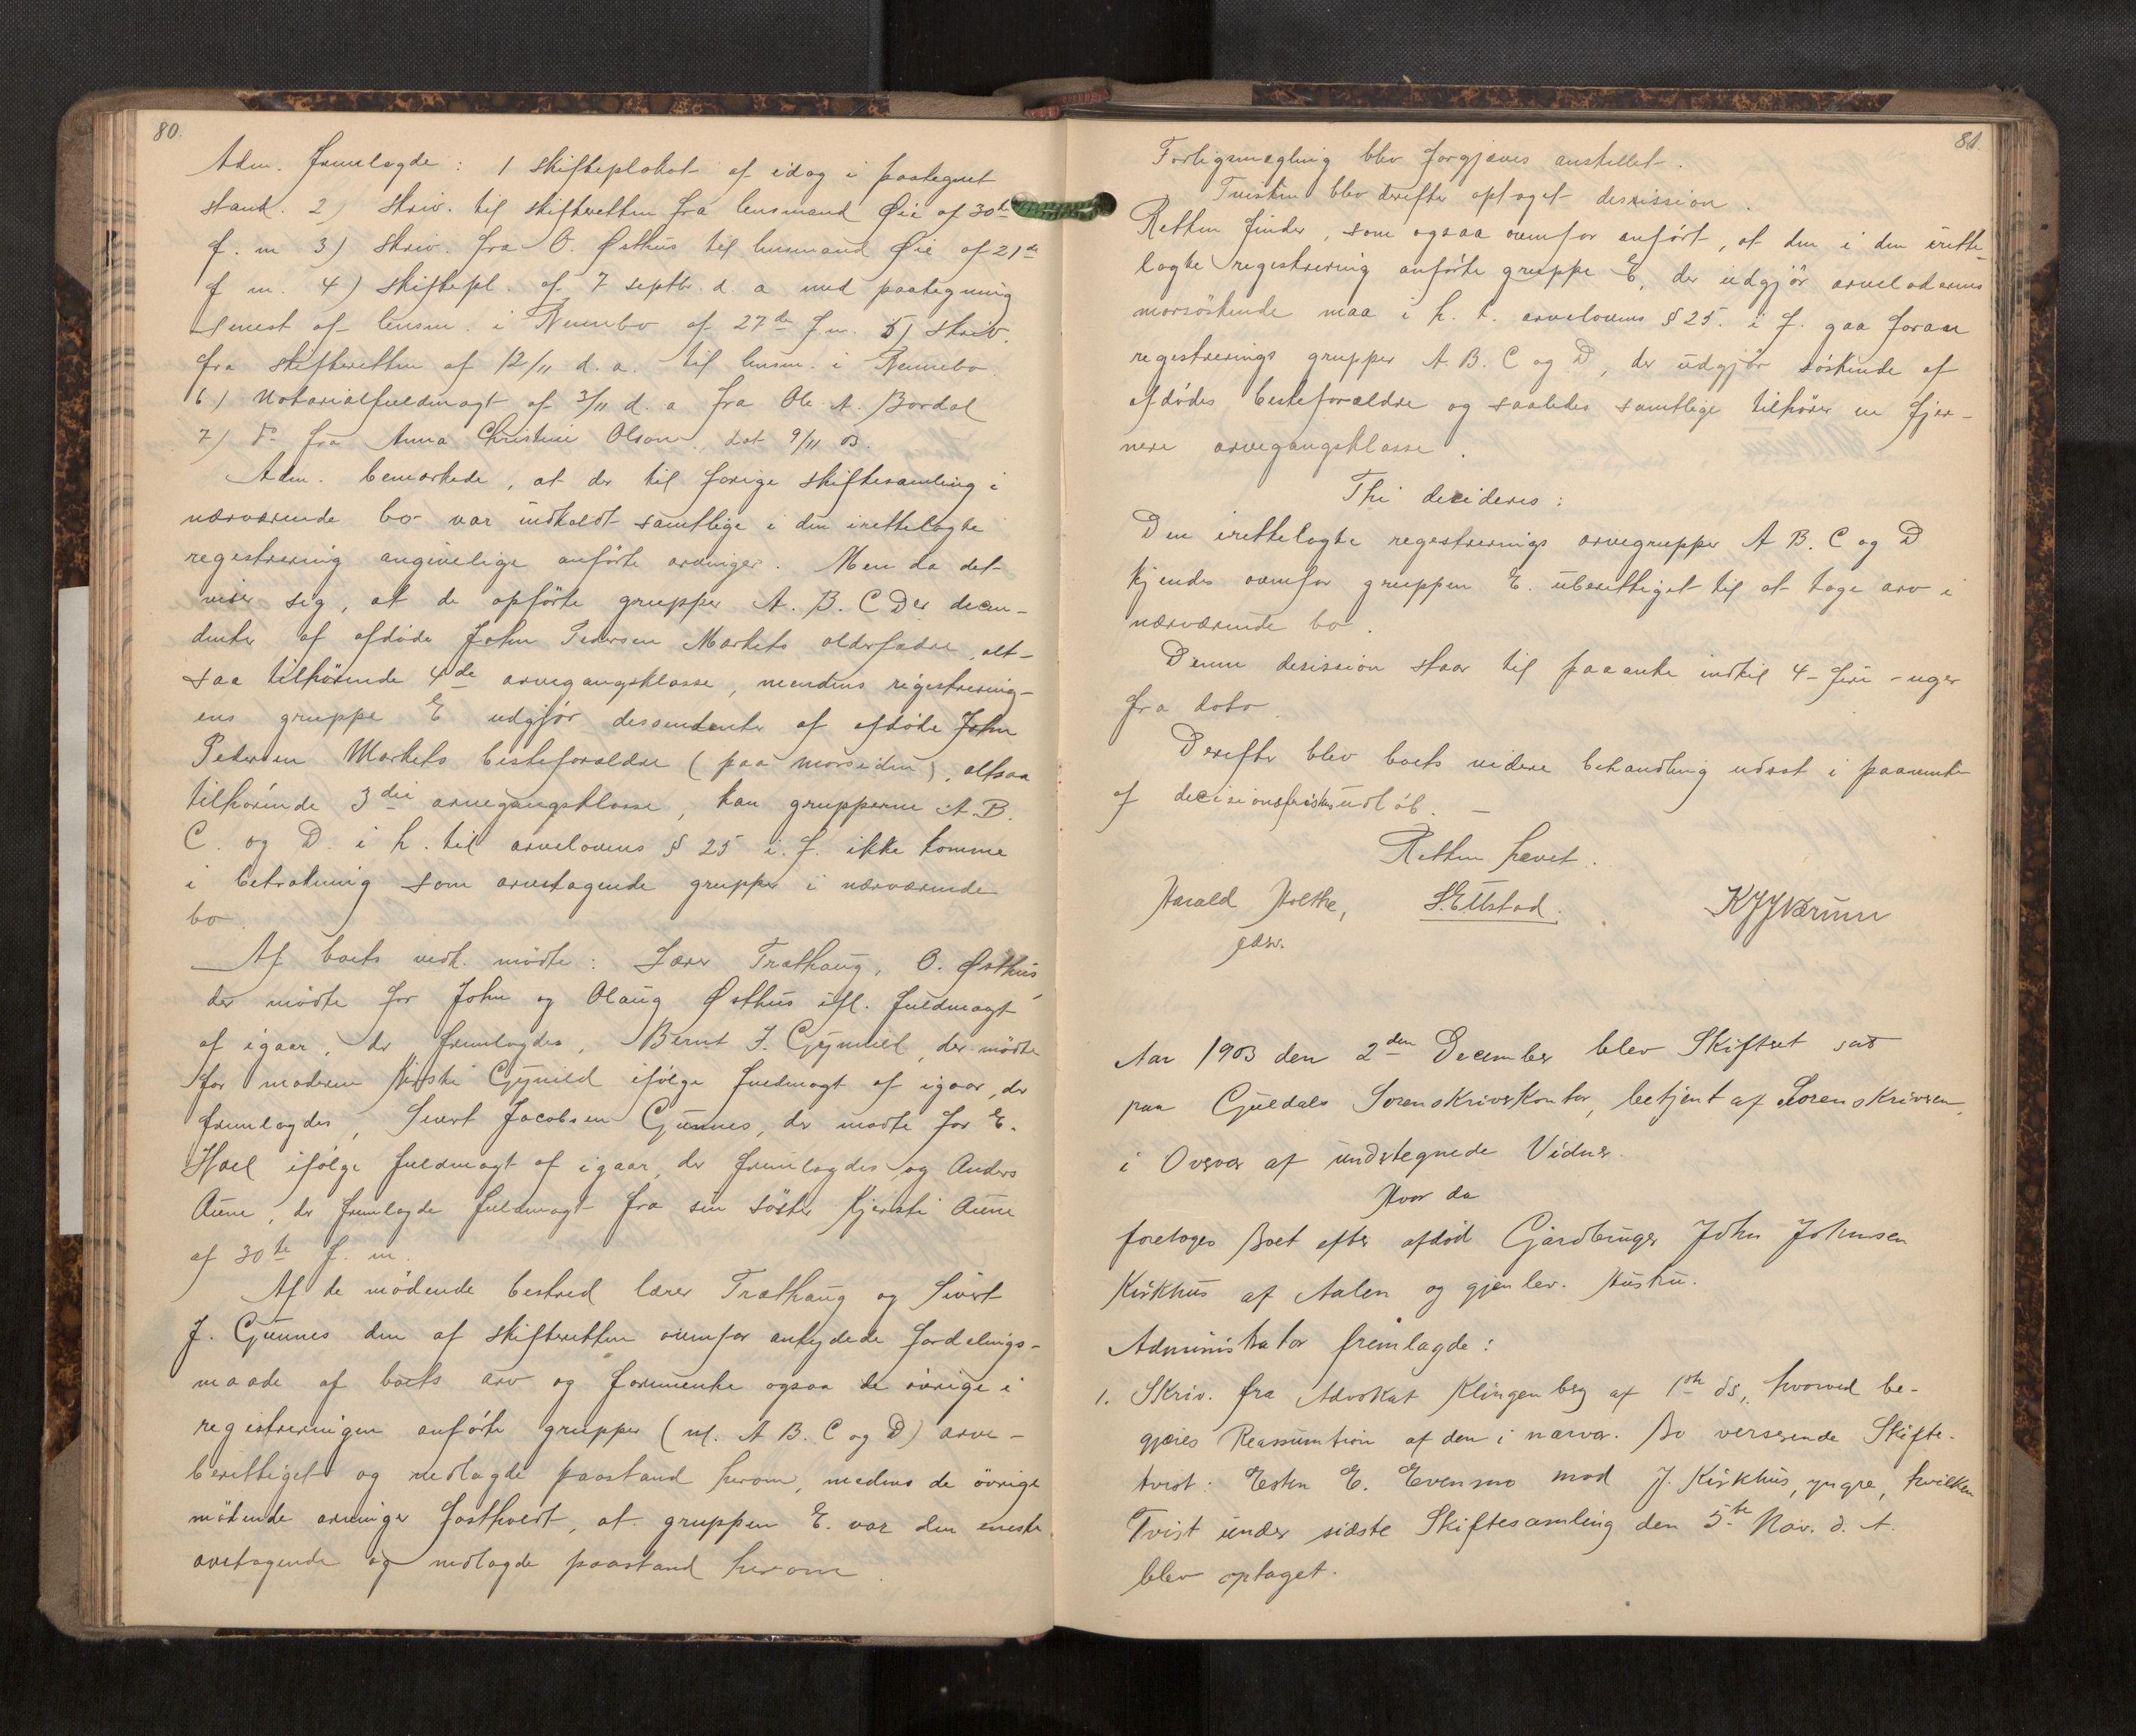 80.
Adm. fremlagde: 1 skifteplakat af idag i paategnet
stand. 2) skriv. til skifteretten fra lensmand Øie af 30te
f. m 3) skriv. fra O. Østhus til lensmand Øie af 21de
f m. 4) skiftepl. af 7 septbr. d. a med paategning
senest af lensm. i Nennebo af 27de f. m. 5) skriv.
fra skifteretten af 12/11 d. a. til lensm. i Nennebo.
6) Notarialfuldmagt af 3/11 d. a fra Ole A. Bordal
7) do fra Anna Christine Olsen, dat 9/11 03.
Adm. bemærkede, at der til forige skiftesamling i
nærværende bo var indkaldt samtlige i den irettelagte
registrering angivelige anførte arvinger. Men da det
viser sig, at de opførte grupper A. B. C D er decen-
denter af afdøde John Pedersen Markets oldefædre, alt-
saa tilhørende 4de arvegangsklasse, mendens registrering-
ens gruppe E udgjør descendenter af afdøde John
Pedersen Markets besteforældre (paa morsiden), altsaa
tilhørende 3die arvegangsklasse, kan grupperne A. B.
C. og D. i h. til arvelovens § 25 i. f. ikke komme
i betraktning som arvetagende grupper i nærværende
bo.
Af boets vedk. mødte: Lærer Træthaug, O. Østhus,
der mødte for John og Olaug Østhus ifl. fuldmagt
af igaar, der fremlagdes, Bernt J. Gynnild, der mødte
for moderen Kirsti Gynnild ifølge fuldmagt af igaar, der
fremlagdes, Sivert Jacobsen Gunnes, der mødte for E.
Hoel ifølge fuldmagt af igaar, der fremlagdes og Anders
Aune, der fremlagde fuldmagt fra sin søster Kjersti Aune
af 30te f. m.
Af de mødende bestred lærer Træthaug og Sivert
J. Gunnes den af skifteretten ovenfor antydede fordelings-
maade af boets arv og formente ogsaa de øvrige i
registreringen anførte grupper (nl. A B. C og D) arve-
berettiget og nedlagde paastand herom, medens de øvrige
mødende arvinger fastholdt, at gruppen E. var den eneste
arvetagende og nedlagde paastand herom.
81.
Forligsmægling blev forgjæves anstillet.
Tvisten blev derefter optaget decission.
Retten finder, som ogsaa ovenfor anført, at den i den irette-
lagte registrering anførte gruppe E, der udgjør arveladerens
morsøskende maa i h. t. arvelovens § 25. i f. gaa foran
registrerings grupper A. B. C og D, der udgjør søskende af
afdødes besteforældre og saaledes samtlige tilhører en fjer-
nere arvegangsklasse.
Thi decideres:
Den irettelagte registrerings arvegrupper A B. C og D
kjendes ovenfor gruppen E. uberettiget til at tage arv i
nærværende bo.
Denne decission staar til paaanke indtil 4-fire-uger
fra dato.
Derefter blev boets videre behandling udsat i paavente
af decisionsfristens udløb. –
Retten hævet.
Harald Holthe, S. Ellstad. K J J Bruun
gdsv.
Aar 1903 den 2den December blev Skifteret sat
paa Guldals Sorenskriverkontor, betjent af Sorenskriveren,
i Overvær af undertegnede Vidner.
Hvor da
foretoges Boet efter afdød Gaardbruger John Johnsen
Kirkhus af Aalen og gjenlev. Hustru.
Administrator fremlagde:
1. Skriv. fra Advokat Klingenberg af 1ste ds., hvorved be-
gjæres Reassumtion af den i nærvær. Bo verserende Skifte-
tvist: Esten E. Evensmo mod J. Kirkhus, yngre, hvilken
Tvist under sidste Skiftesamling den 5te Nov. d. A.
blev optaget.